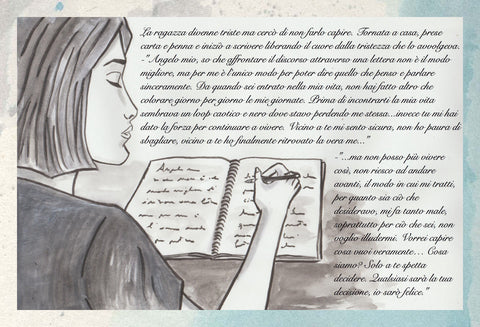 La ragazza divenne triste ma cercò di non farlo capire. Tornata a casa, prese
carta e penna e iniziò a scrivere liberando il cuore dalla tristezza che lo avvolgeva.
-"Angelo mio, so che affrontare il discorso attraverso una lettera non è il modo
migliore, ma per me è l'unico modo per poter dire quello che penso e parlare
sinceramente. Da quando sei entrato nella mia vita, non hai fatto altro che
colorare giorno per giorno le mie giornate. Prima di incontrarti la mia vita
sembrava un loop caotico e nero dove stavo perdendo me stessa...invece tu mi hai
dato la forza per continuare a vivere. Vicino a te mi sento sicura, non ho paura di
sbagliare, vicino a te ho finalmente ritrovato la vera me..."
-"...ma non posso più vivere
così, non riesco ad andare
avanti, il modo in cui mi tratti,
per quanto sia ciò che
desideravo, mi fa tanto male,
soprattutto per ciò che sei, non
voglio illudermi. Vorrei capire
cosa vuoi veramente... Cosa
siamo? Solo a te spetta
decidere. Qualsiasi sarà la tua
decisione, io sarò felice."
Angelo mio